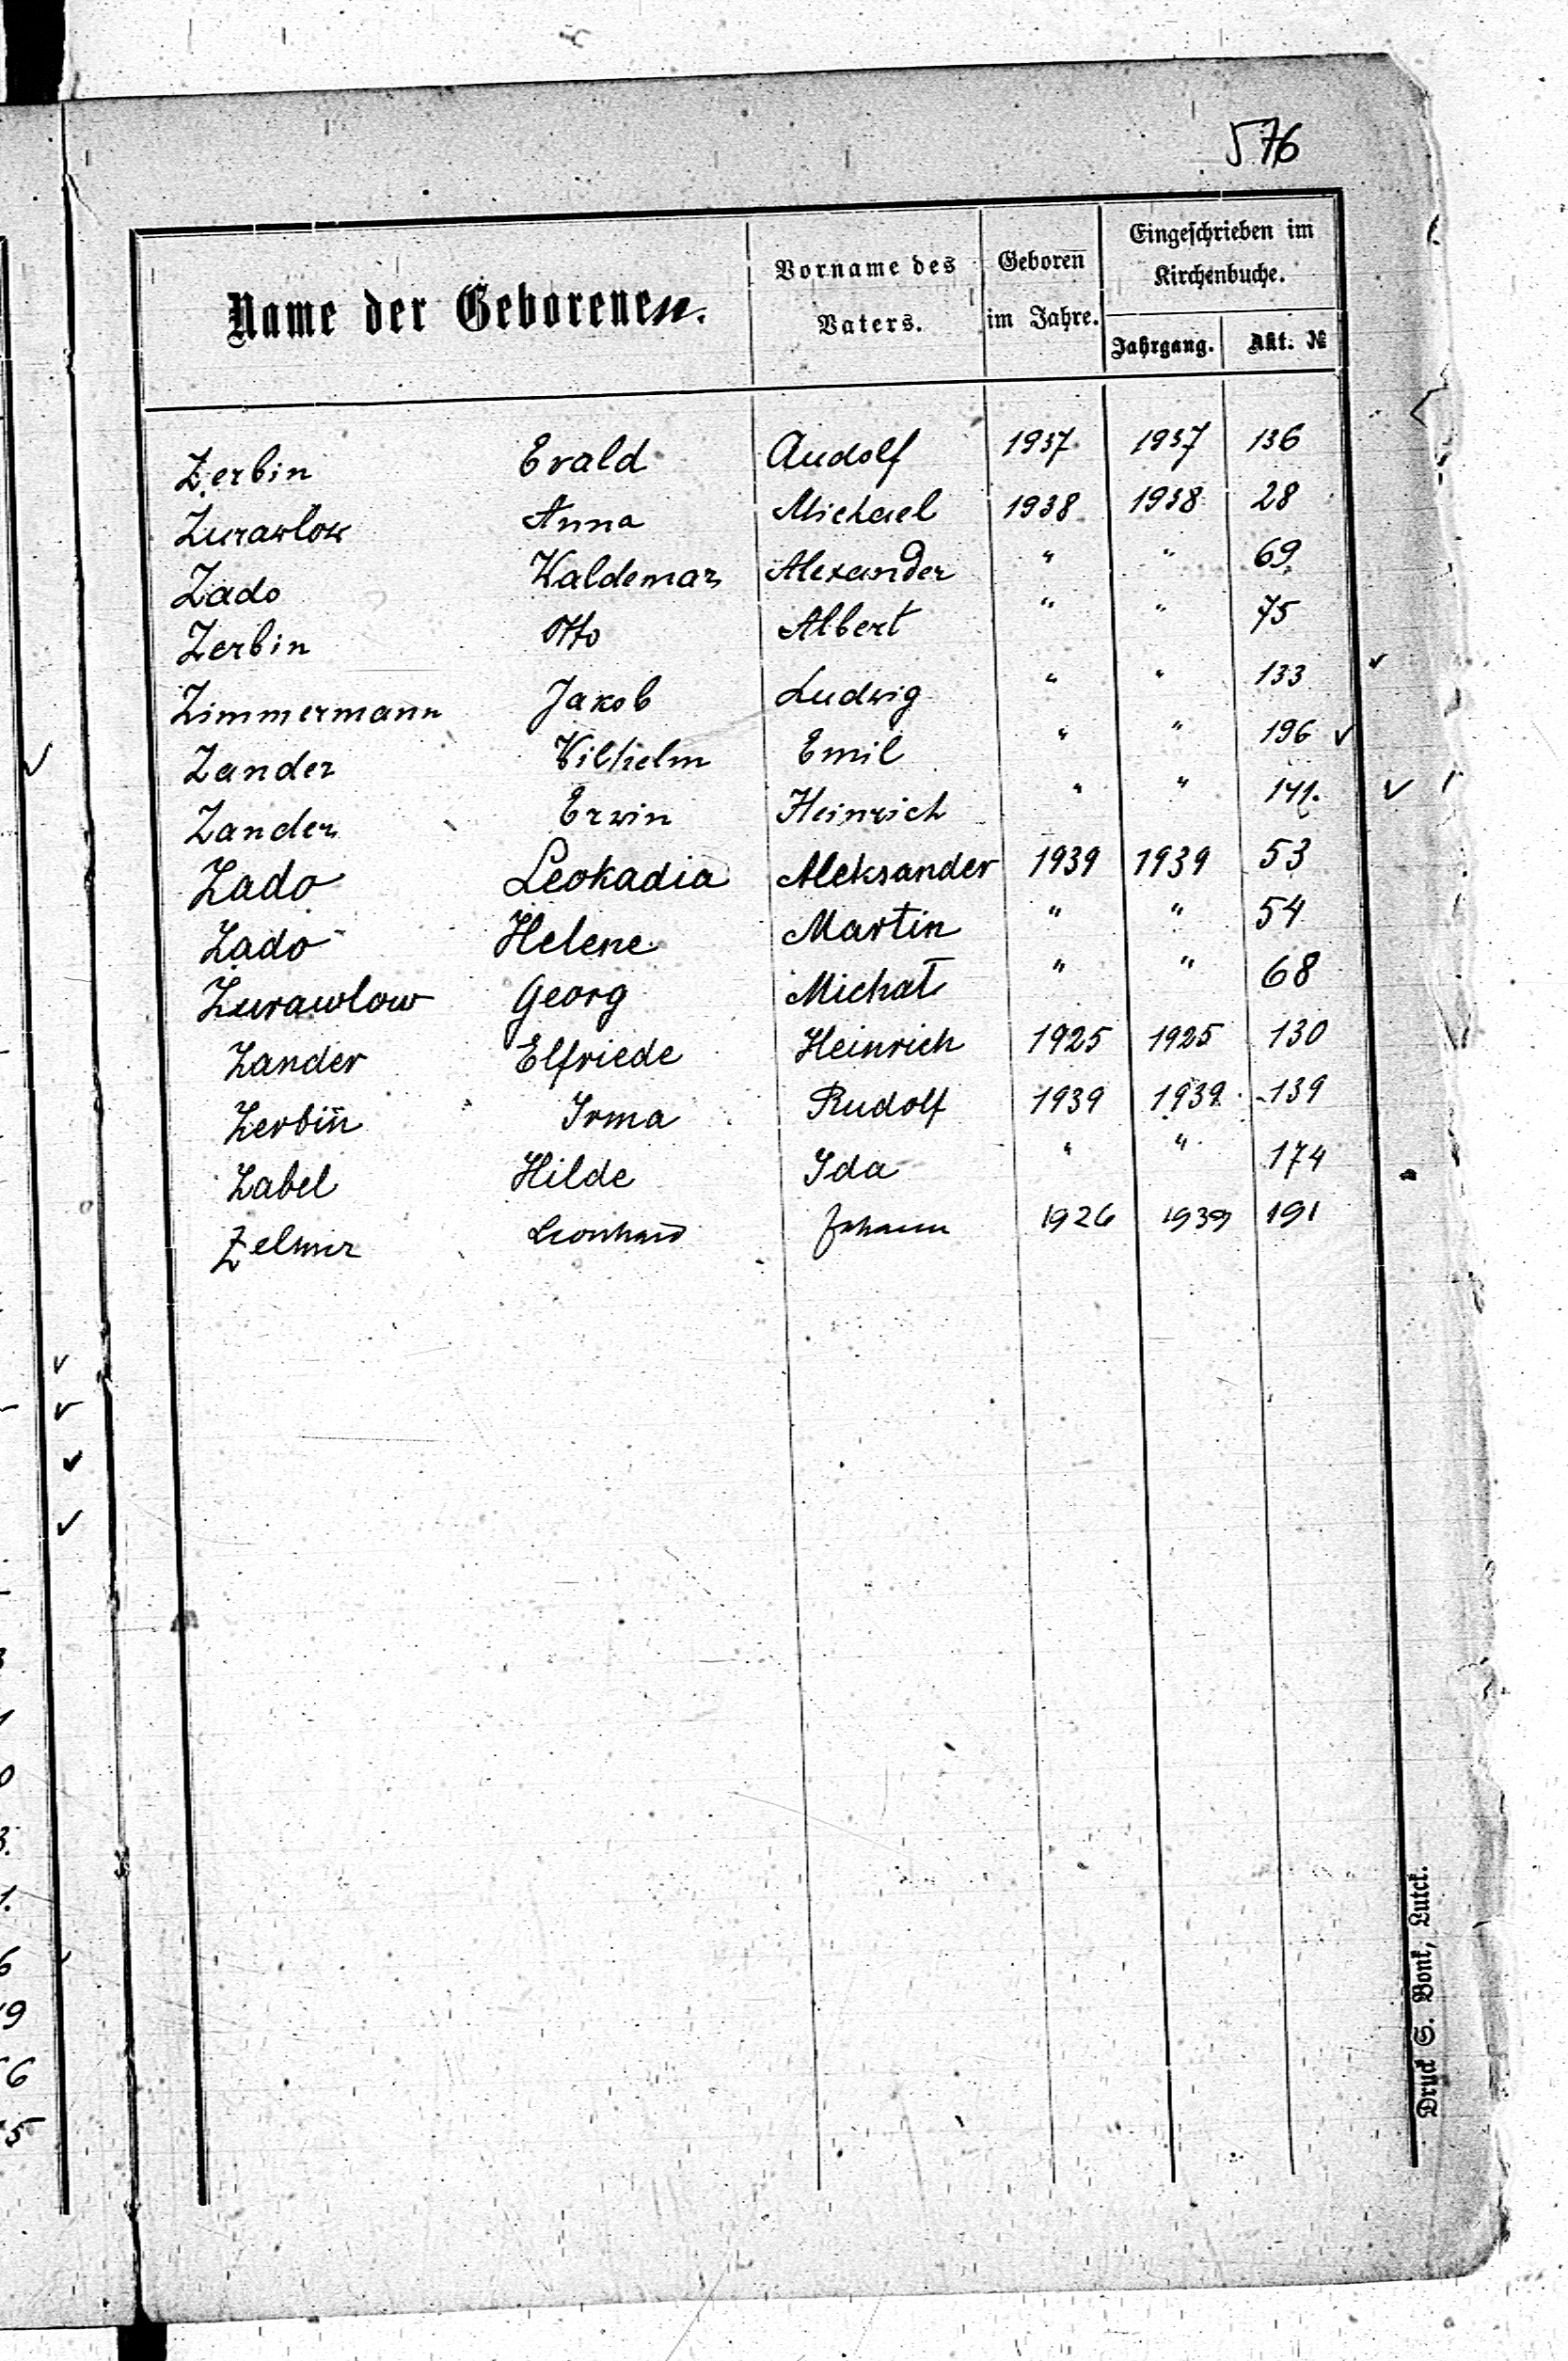 576
Name der Geborenen.
Vorname des Vaters.
Geboren im Jahre.
Eingeschrieben im Kirchenbuche.
Jahrgang.
Akt. №
Zerbin Evald Rudolf 1937 1937 136
Zurawlow Anna Michael 1938 1938 28
Zado Waldemar Alexander " " 69
Zerbin Otto Albert " " 75
Zimmermann Jakob Ludwig " " 133
Zander Wilhelm Emil " " 196
Zander Erwin Heinrich " "
Zado Leokadia Aleksander 1939 1939 53
Zado Helene Martin " " 54
Zurawlow Georg Michał " " 68
Zander Elfriede Heinrich 1925 1925 130
Zerbin Irma Rudolf 1939 1939 139
Zabel Hilde Ida " " 174
Zelmer Leonhard Johann 1926 1939 191
Druck S. Bonk, Lutck.